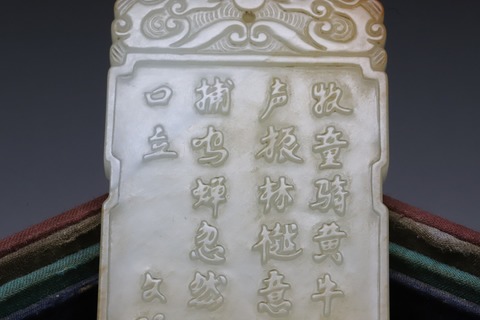 牧童骑黄牛
声振林樾意
捕鸣蝉忽然
口立
文